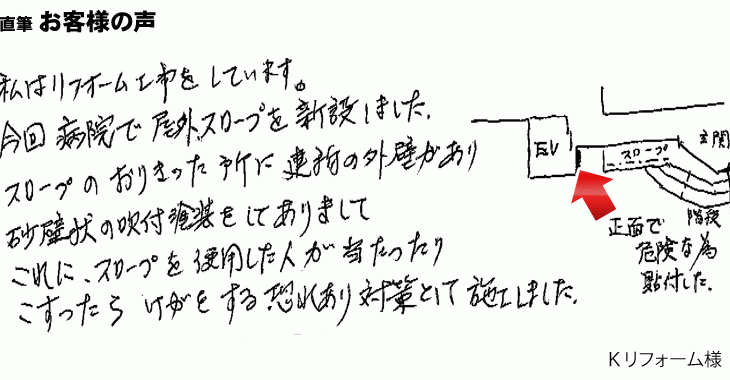 直筆 お客様の声
私はリフォーム工事をしています。
今回 病院で屋外スロープを新設しました。
スロープのおりきった所に建物の外壁があり
砂壁状の吹付塗装をしてありまして
これに、スロープを使用した人が当たったり
こすったらけがをする恐れあり対策として施工しました。
EV
スロープ
玄関
階段
正面で
危険な為
貼付した。
Kリフォーム様